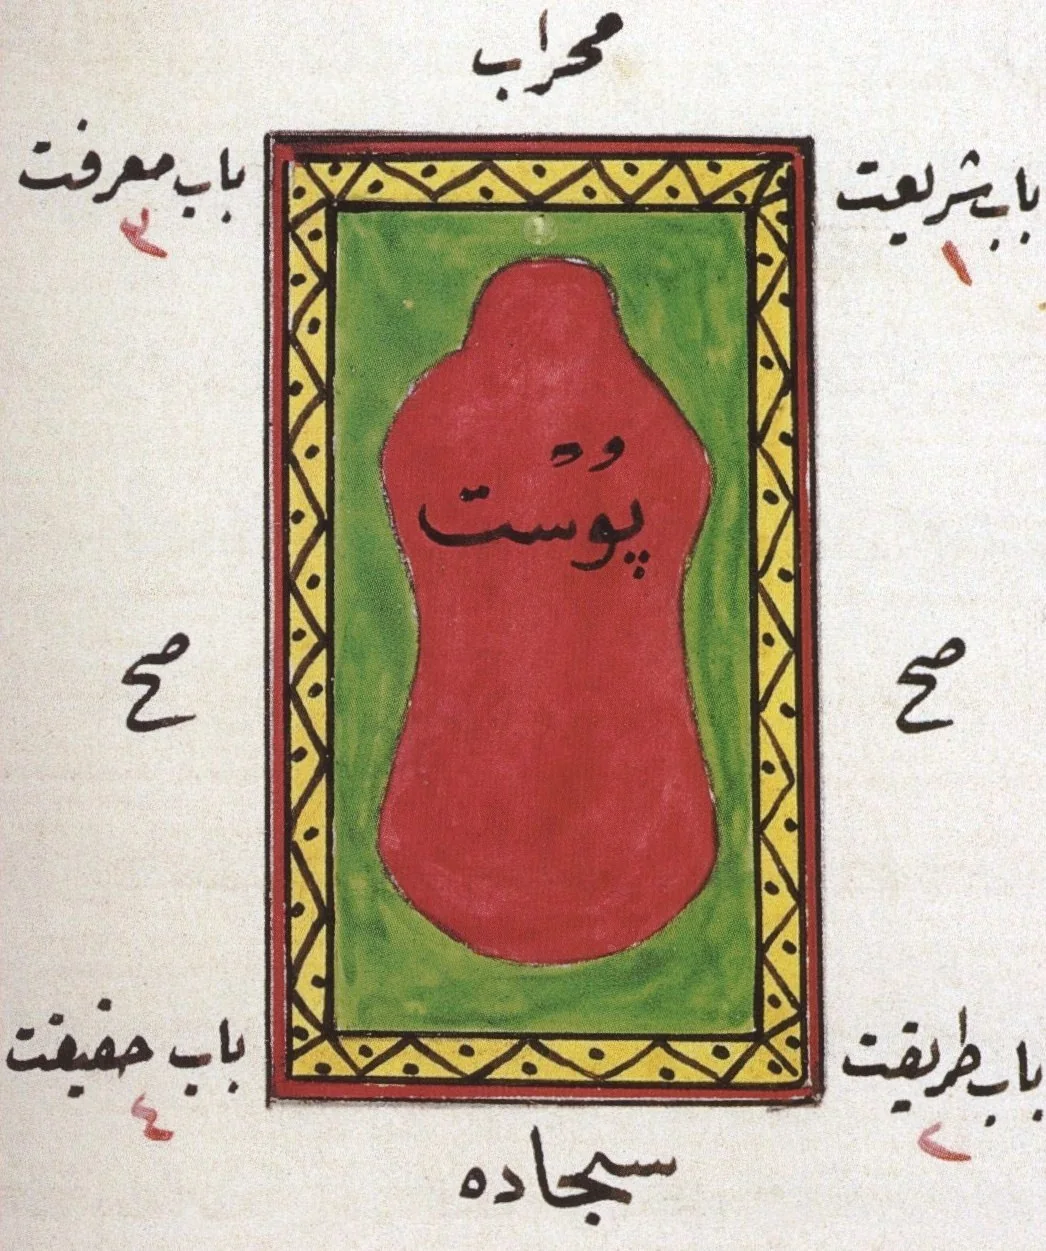 محراب
باب شریعت
١
باب معرفت
٣
پوست
صح
صح
باب طریقت
٢
باب حقیقت
٤
سجاده